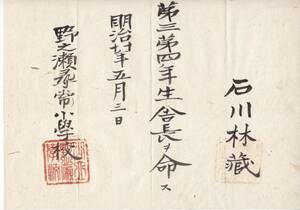 石川林藏
第三第四年生舎長ヲ命ス
明治廿年五月三日
野之瀬尋常小學校